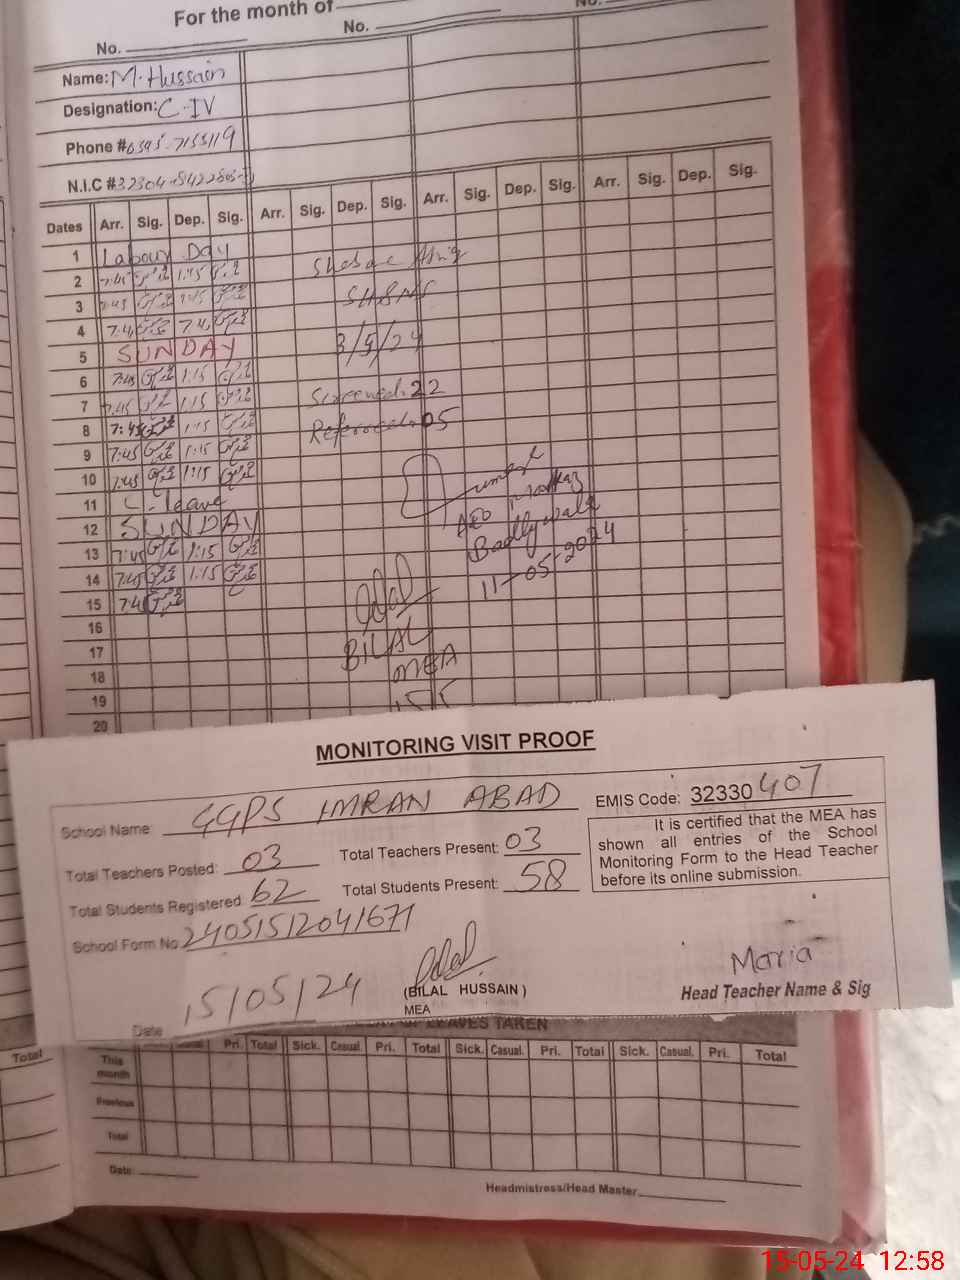 For the month of
No. No. No.
Name: M. Hussain
Designation: C-IV
Phone #
N.I.C #
Dates Arr. Sig. Dep. Sig. Arr. Sig. Dep. Sig. Arr. Sig. Dep. Sig. Arr. Sig. Dep. Sig.
1 Labour Day
2 7:45 1:45
3 7:45
4 7:4 7 4
5 SUNDAY
3/5/24
6 7:45 1:15
7 7:45 1:15
Screened: 22
8 7:45 1:15
Refereed: 05
9 7:45 1:15
10 7:45 1:15
11 C. leave
AEO Markaz
12 SUNDAY
13 7:45 1:15
11-05-2024
14 7:45 1:15
15 7:4
16
17
BILAL
18
MEA
19
15 5
20
MONITORING VISIT PROOF
School Name: GGPS IMRAN ABAD
EMIS Code: 32330407
It is certified that the MEA has
shown all entries of the School
Monitoring Form to the Head Teacher
before its online submission.
Total Teachers Posted: 03 Total Teachers Present: 03
Total Students Registered: 62 Total Students Present: 58
School Form No 24051512041671
Date 15/05/24
(BILAL HUSSAIN)
MEA
Maria
Head Teacher Name & Sig
LEAVES TAKEN
Total Pri. Total Sick. Casual. Pri. Total Sick. Casual. Pri. Total Sick. Casual. Pri. Total
This
month
Previous
Total
Date:
Headmistress/Head Master
15-05-24 12:58